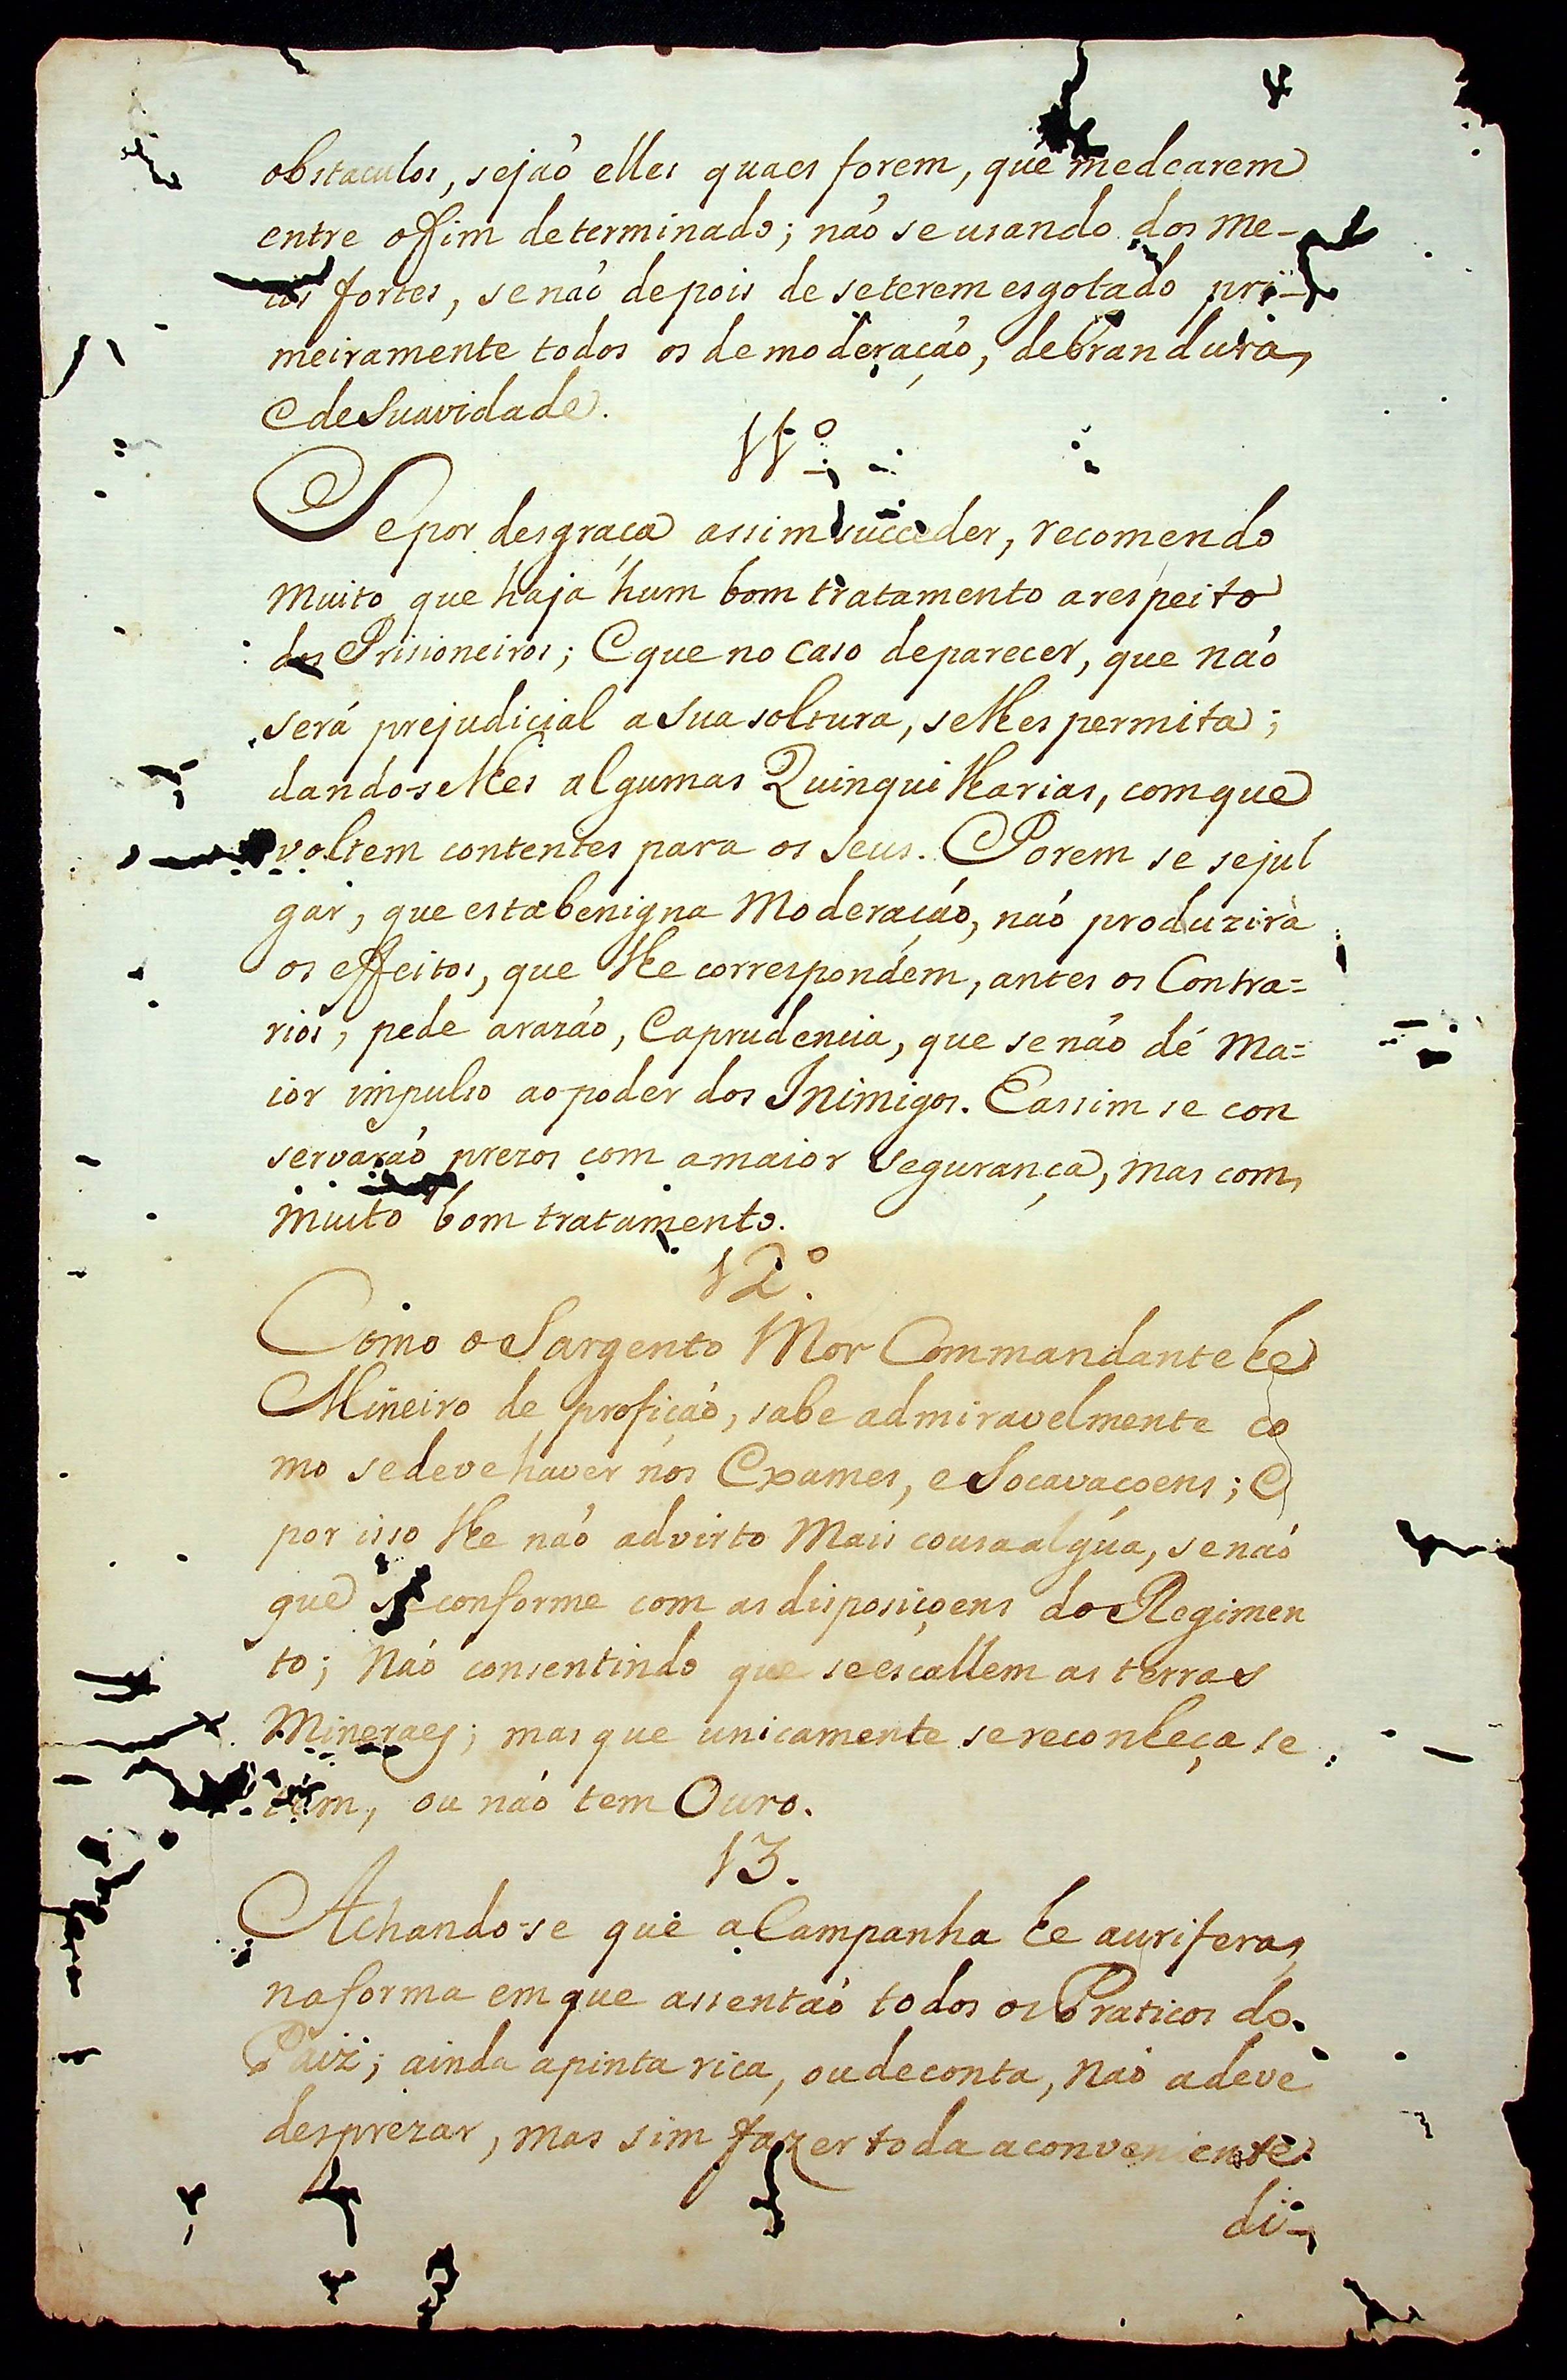 obstaculos, sejaó elles quaes forem, que medearem
entre o fim determinado; naó se usando dos me-
ios fortes, se naó depois de se terem esgotado pri-
meiramente todos os de moderaçaó, de brandura,
e de suavidade.
11º
Se por desgraça assim succeder, recomendo
muito que haja hum bom tratamento a respeito
dos Prisioneiros; E que no caso de parecer, que naó
será prejudicial a sua soltura, se lhes permita;
dando-se lhes algumas Quinquilharias, com que
voltem contentes para os seus. Porem se se jul
gar, que esta benigna Moderaçaó, naó produzirà
os effeitos, que lhe correspondem, antes os Contra=
rios, pede a razaó, e a prudencia, que se naó dé ma=
ior impulso ao poder dos Inimigos. E assim se con
servaraó prezos com a maior segurança, mas com
muito bom tratamento.
12º
Como o Sargento Mor Commandante he
Mineiro de profiçaó, sabe admiravelmente co
mo se deve haver nos Exames, e Socavaçoens; E
por isso lhe naó advirto mais cousa algúa, se naó
que se conforme com as disposiçoens do Regimen
to; Naó consentindo que se escallem as terras
Mineraes; mas que unicamente se reconheça se
tem, ou naó tem Ouro.
13.
Achando-se que a Campanha he aurifera,
na forma em que assentaó todos os Praticos do
Paiz; ainda a pinta rica, ou de conta, Naó a deve
desprezar, mas sim fazer toda a conveniente
di-